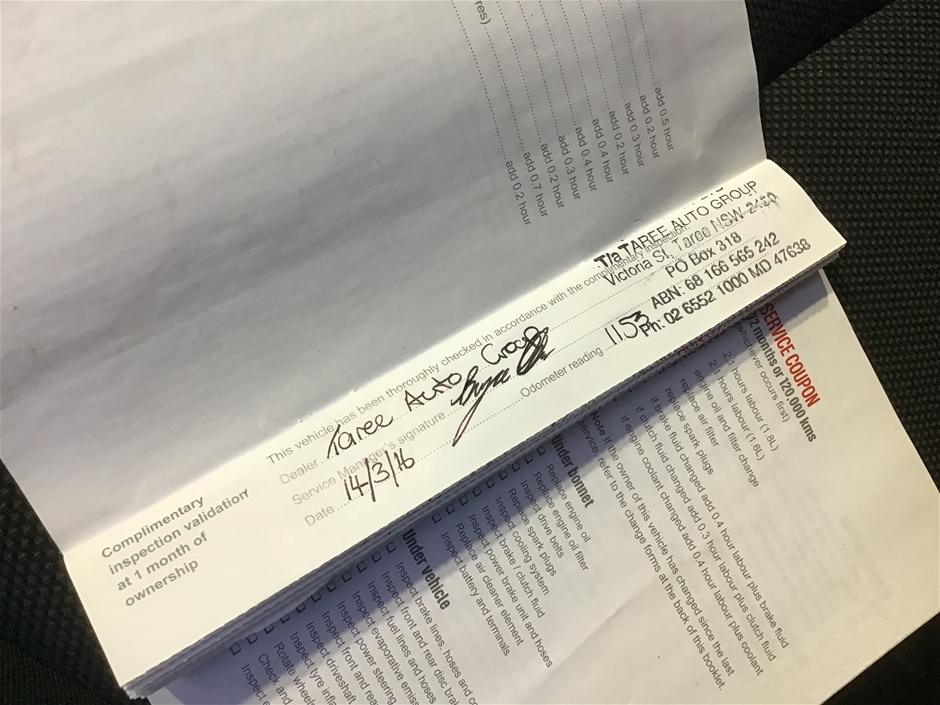 res)
add 0.5 hour
add 0.2 hour
add 0.3 hour
add 0.2 hour
add 0.4 hour
add 0.4 hour
add 0.3 hour
add 0.2 hour
add 0.7 hour
add 0.2 hour
Complimentary
inspection validation
at 1 month of
ownership
This vehicle has been thoroughly checked in accordance with the complimentary inspection.
Dealer Taree Auto Group
Service Manager's signature
Date 14/3/16 Odometer reading 1153
T/a TAREE AUTO GROUP
Victoria St, Taree NSW
PO Box 318
ABN: 68 166 565 242
Ph: 02 6552 1000 MD 47638
SERVICE COUPON
72 months or 120,000 kms
(whichever occurs first)
2.1 hours labour (1.8L)
2. hours labour (1.6L)
engine oil and filter change
replace air filter
replace spark plugs
if brake fluid changed add 0.4 hour labour plus brake fluid
if clutch fluid changed add 0.3 hour labour plus clutch fluid
if engine coolant changed add 0.4 hour labour plus coolant
Note If the owner of this vehicle has changed since the last
service, refer to the change forms at the back of this booklet.
Under bonnet
Replace engine oil
Replace engine oil filter
Inspect drive belts
Replace spark plugs
Inspect cooling system
Inspect brake / clutch fluid
Inspect power brake unit and hoses
Replace air cleaner element
Inspect battery and terminals
Under vehicle
Inspect brake lines, hoses and
Inspect front and rear disc
Inspect fuel lines and hoses
Inspect evaporative
Inspect power steering
Inspect front and
Inspect driveshaft
Inspect tyre
Rotate
Check and
Inspect